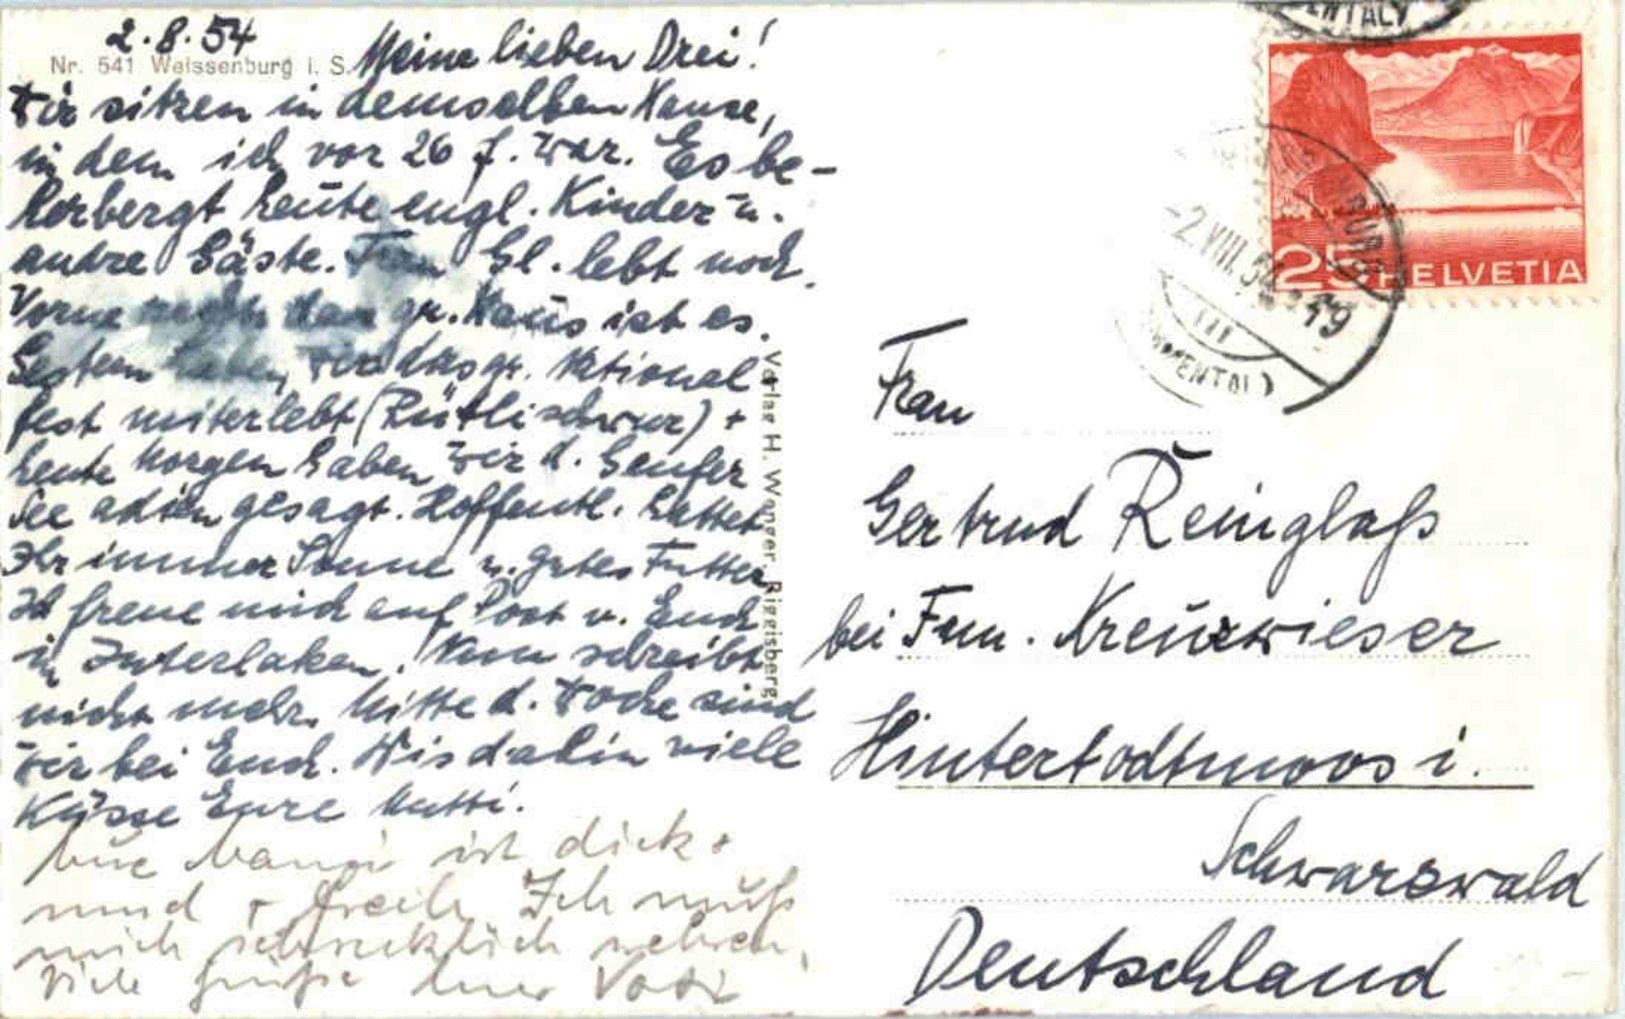 2.8.54
Nr. 541 Weissenburg i. S.
Meine lieben Drei!
Wir sitzen in demselben Hause,
in dem ich vor 26 J. war. Es be-
herbergt heute engl. Kinder u.
andre Gäste. Frau Gl. lebt noch.
Vorne rechts das gr. Haus ist es.
Gestern haben wir das gr. National
fest miterlebt (Rütlischwur) +
heute Morgen haben wir d. Genfer
See adieu gesagt. Hoffentl. hattet
Ihr immer Sonne u. gutes Futter.
Ich freue mich auf Post v. Euch
in Interlaken. Nun schreibt
nicht mehr. Mitte d. Woche sind
wir bei Euch. Bis dahin viele
Küsse Eure Mutti.
ist dick +
rund + Ich muß
mich schrecklich wehren,
Viele Grüße Euer Vati
Verlag H. Wenger, Riggisberg
ENTAL)
25 HELVETIA
-2.VIII.54-19
Frau
Gertrud Reinglaß
bei Fam. Kreuzwieser
Hintertodtmoos i.
Schwarzwald
Deutschland